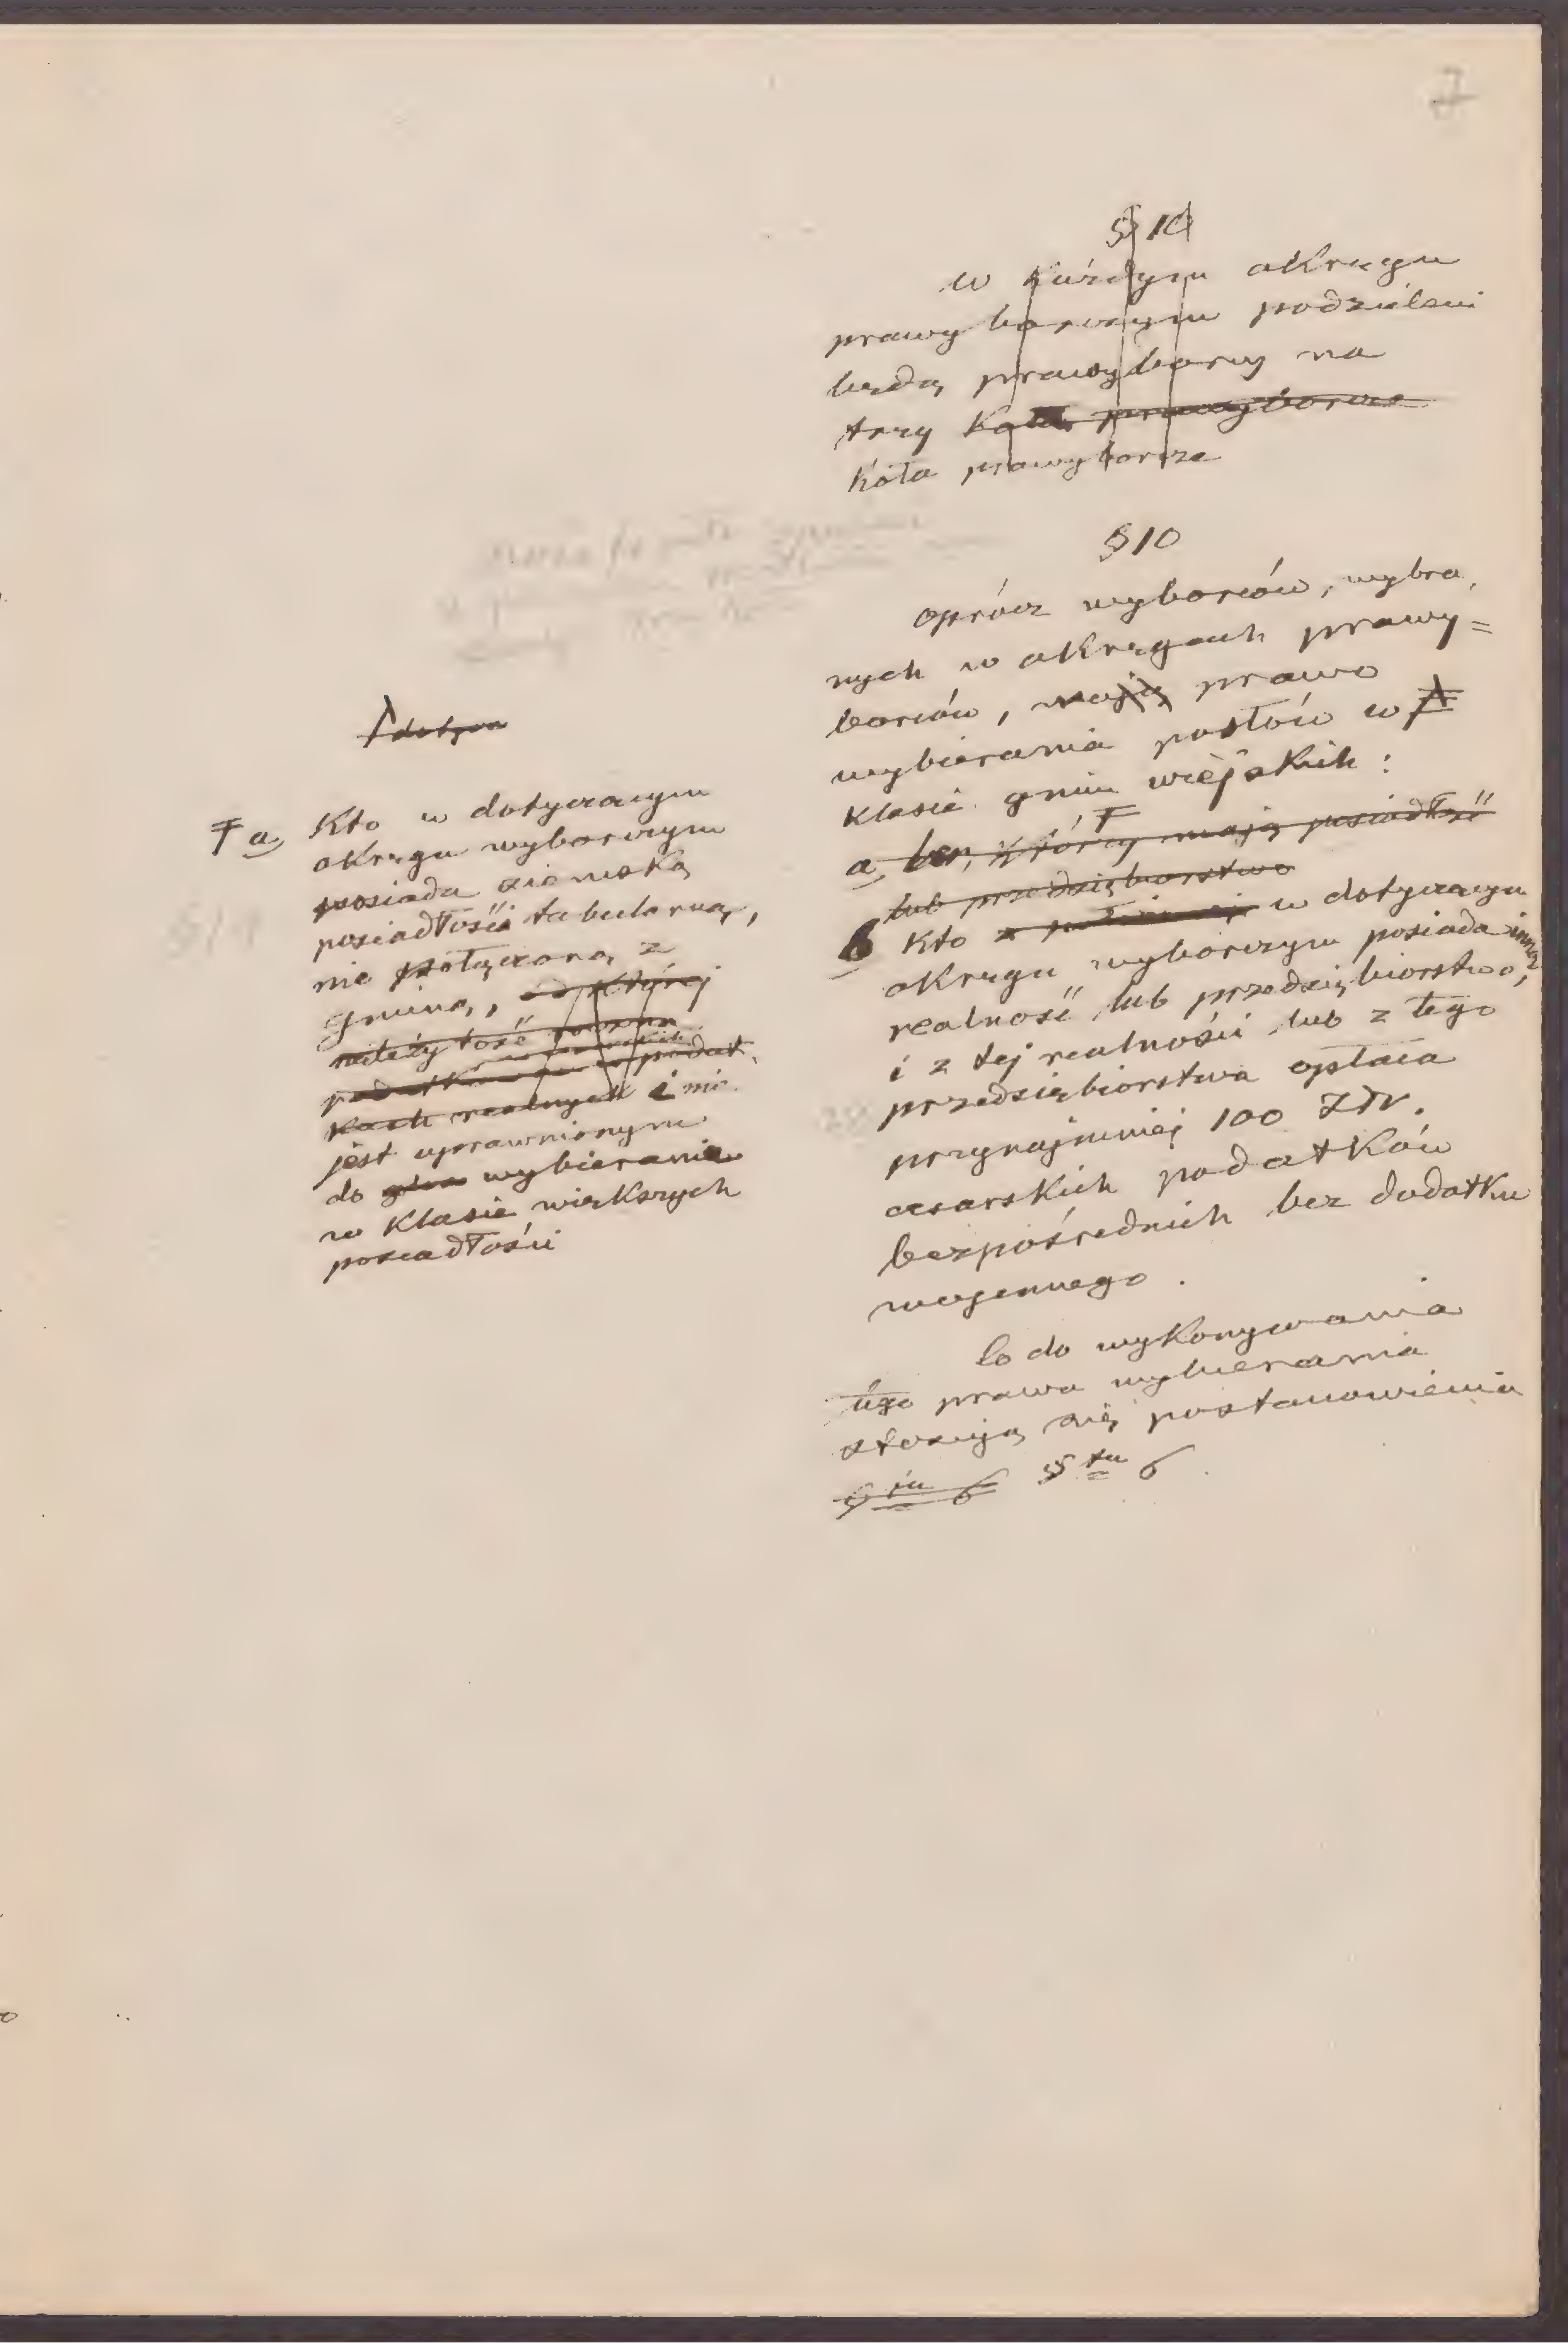 7
§ 10
w każdym okręgu
prawyborczym podzieleni
będą prawyborcy na
trzy koła prawyborcze
koła prawyborcze
§ 10
oprócz wyborców, wybra,
nych w okręgach prawy=
borców, mają prawo
wybierania posłów w
klasie gmin wiejskich:
a, którzy mają posiadłość
lub przedsiębiorstwo
b Kto w dotyczącym
okręgu wyborczym posiada inną
realność lub przedsiębiorstwo,
i z tej realności lub z tego
przedsiębiorstwa opłaca
przynajmniej 100 Złr.
cesarskich podatków
bezpośrednich bez dodatku
wojennego.
Co do wykonywania
tego prawa wybierania
stosują się postanowienia
§ fu 6 § fu 6
Ŧ a, Kto w dotyczącym
okręgu wyborczym
posiada ziemską
posiadłość tabularną,
nie połączoną z
gminą, od której
należytość
podatków podat.
kach realnych i nie
jest uprawnionym
do wybierania
w klasie większych
posiadłości